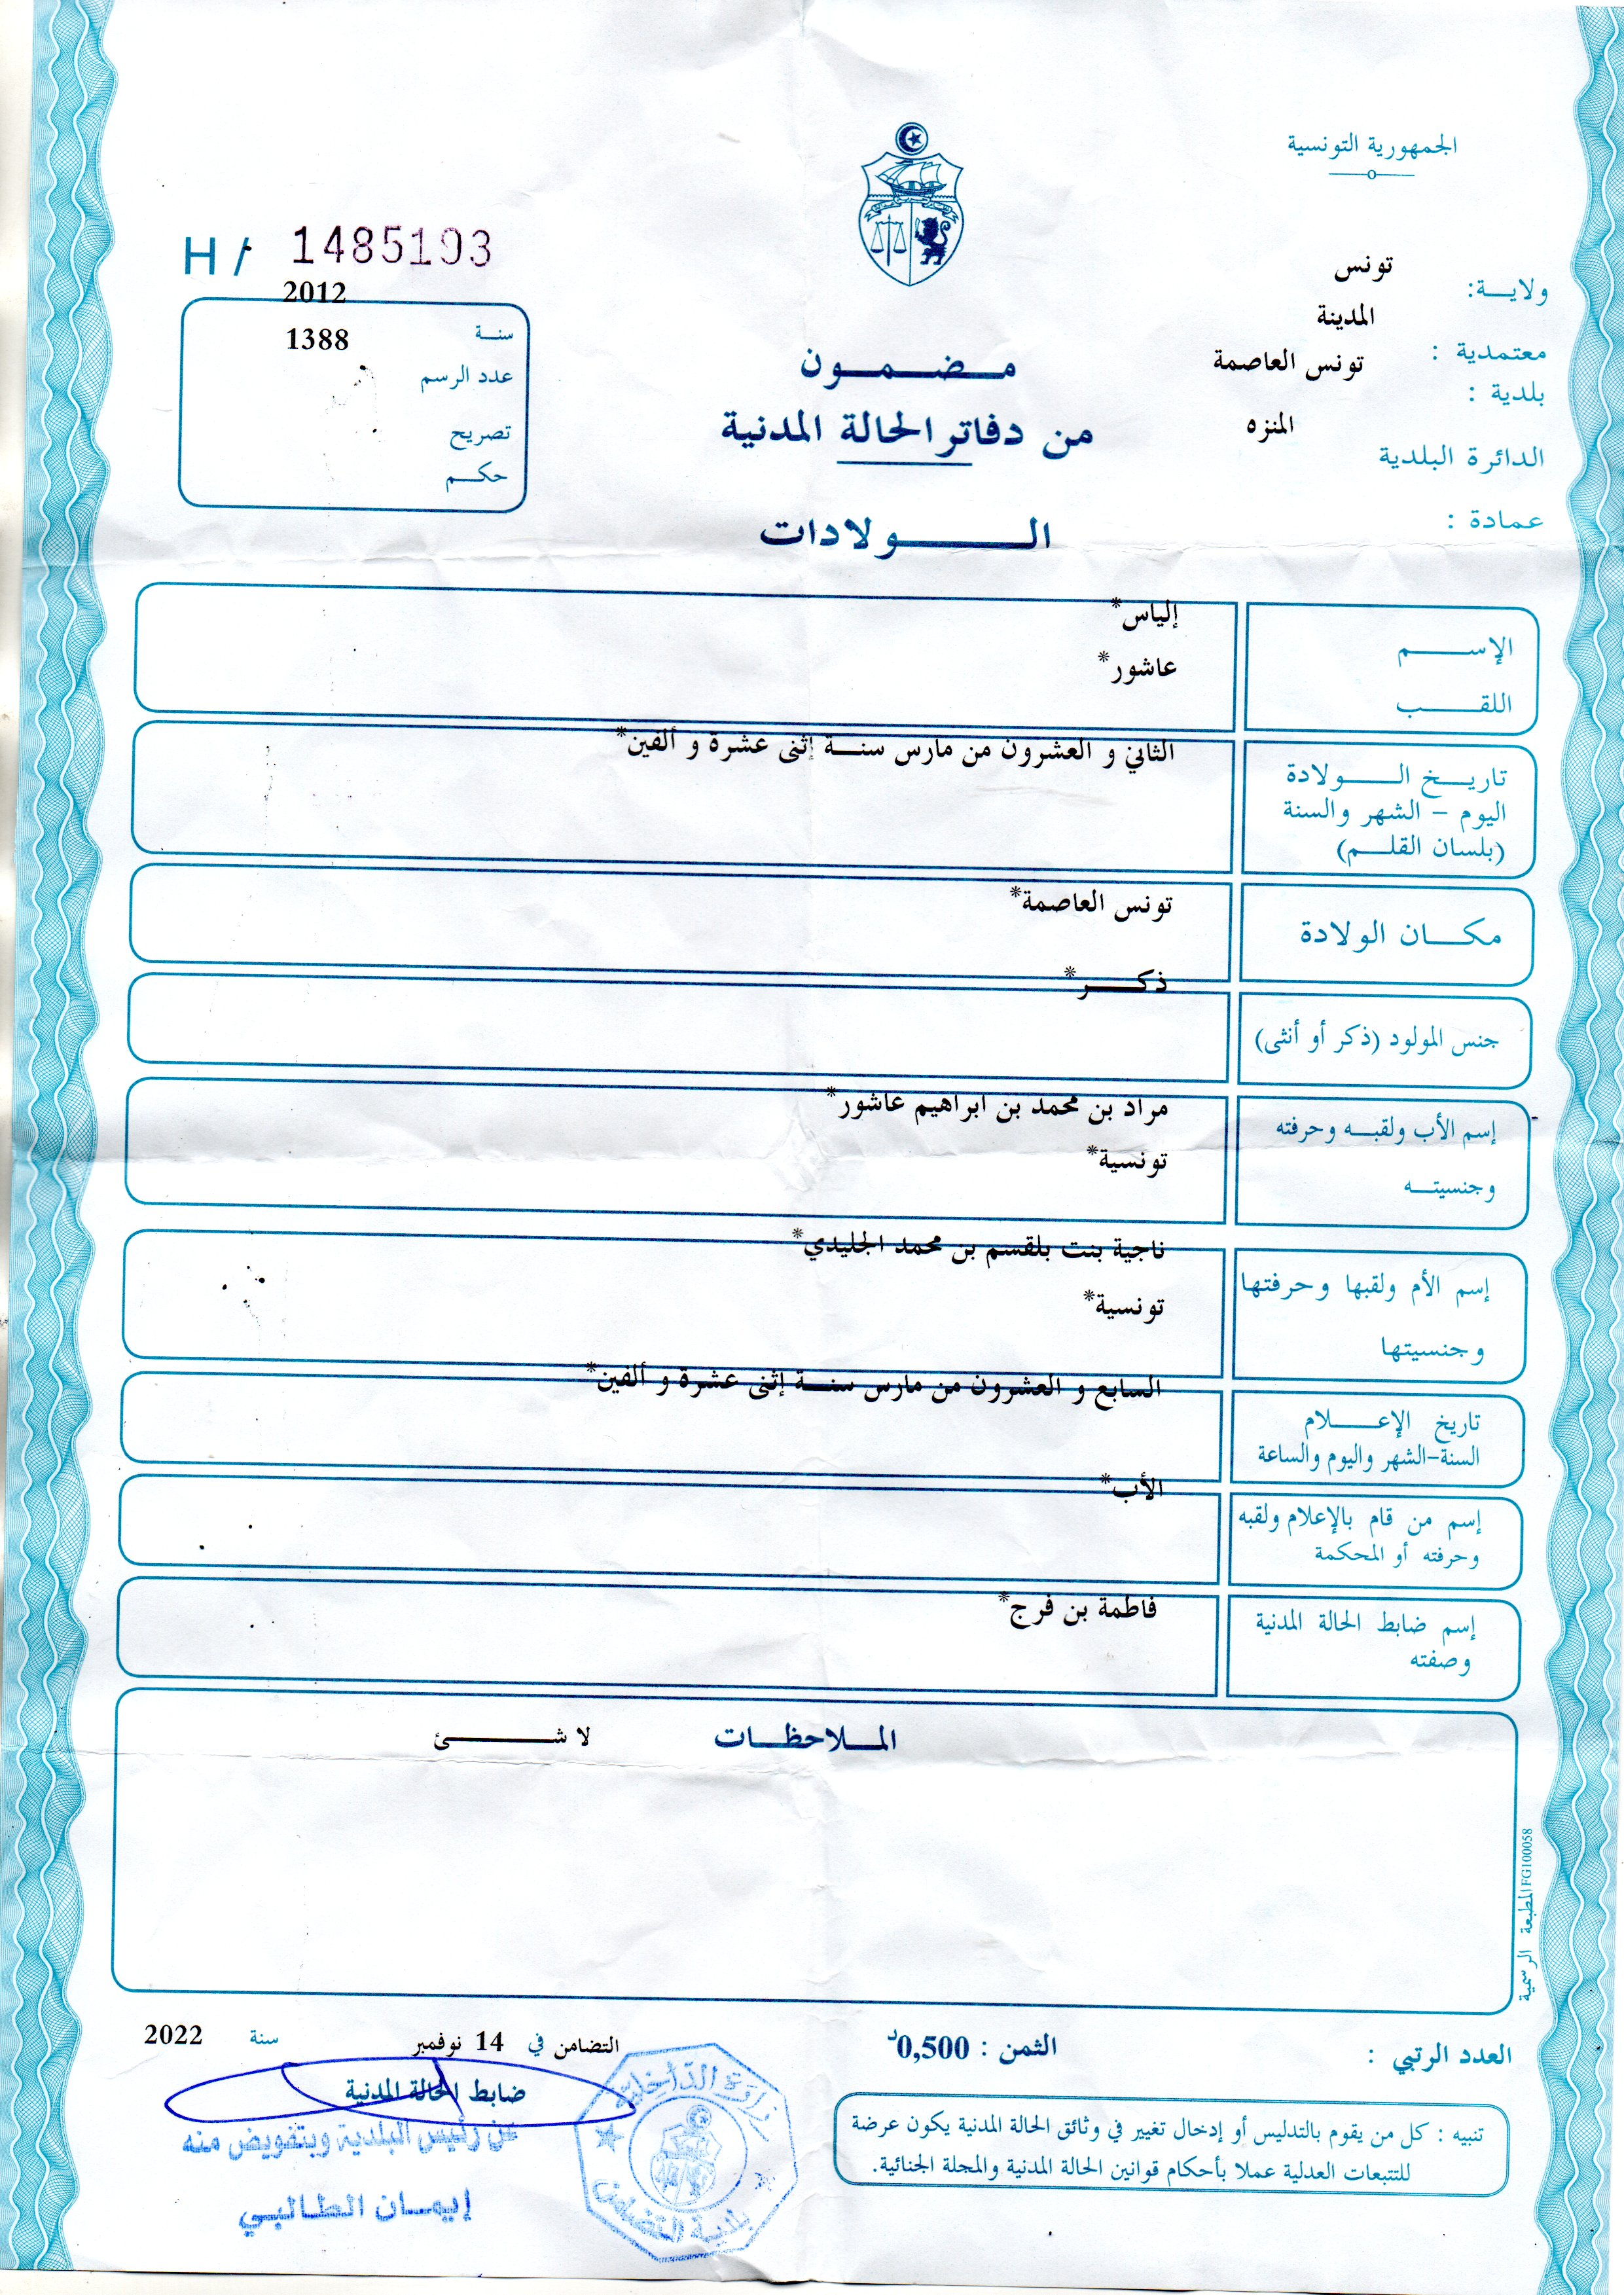 الجمهورية التونسية
H / 1485193
ولايـــة: تونس
معتمدية : المدينة
بلدية : تونس العاصمة
الدائرة البلدية المنزه
عمادة :
سنــة 2012
عدد الرسم 1388
تصريح
حكــم
مـــضـــمـــون
من دفاتر الحالة المدنية
الـــــولادات
الإســـــم إلياس*
اللقـــــب عاشور*
تاريـــخ الــــولادة الثاني و العشرون من مارس سنـــة إثنى عشرة و ألفين*
اليوم - الشهر والسنة
(بلسان القلـــم)
مكــــان الولادة تونس العاصمة*
جنس المولود (ذكر أو أنثى) ذكـــــر*
إسم الأب ولقبــه وحرفته مراد بن محمد بن ابراهيم عاشور*
وجنسيتــه تونسية*
إسم الأم ولقبها وحرفتها ناجية بنت بلقسم بن محمد الجليدي*
وجنسيتها تونسية*
تاريخ الإعــــلام السابع و العشرون من مارس سنـــة إثنى عشرة و ألفين*
السنة-الشهر واليوم والساعة
إسم من قام بالإعلام ولقبه الأب*
وحرفته أو المحكمة
إسم ضابط الحالة المدنية فاطمة بن فرج*
وصفته
المــلاحظــات لا شـــــــئ
المطبعة الرسمية FG100058
العدد الرتبي :
الثمن : 0,500د
التضامن في 14 نوفمبر سنة 2022
ضابط الحالة المدنية
عن رئيس البلدية وبتفويض منه
إيمــان الطــالبــي
وزارة الداخلية
بلدية التضامن
تنبيه : كل من يقوم بالتدليس أو إدخال تغيير في وثائق الحالة المدنية يكون عرضة
للتتبعات العدلية عملا بأحكام قوانين الحالة المدنية والمجلة الجنائية.